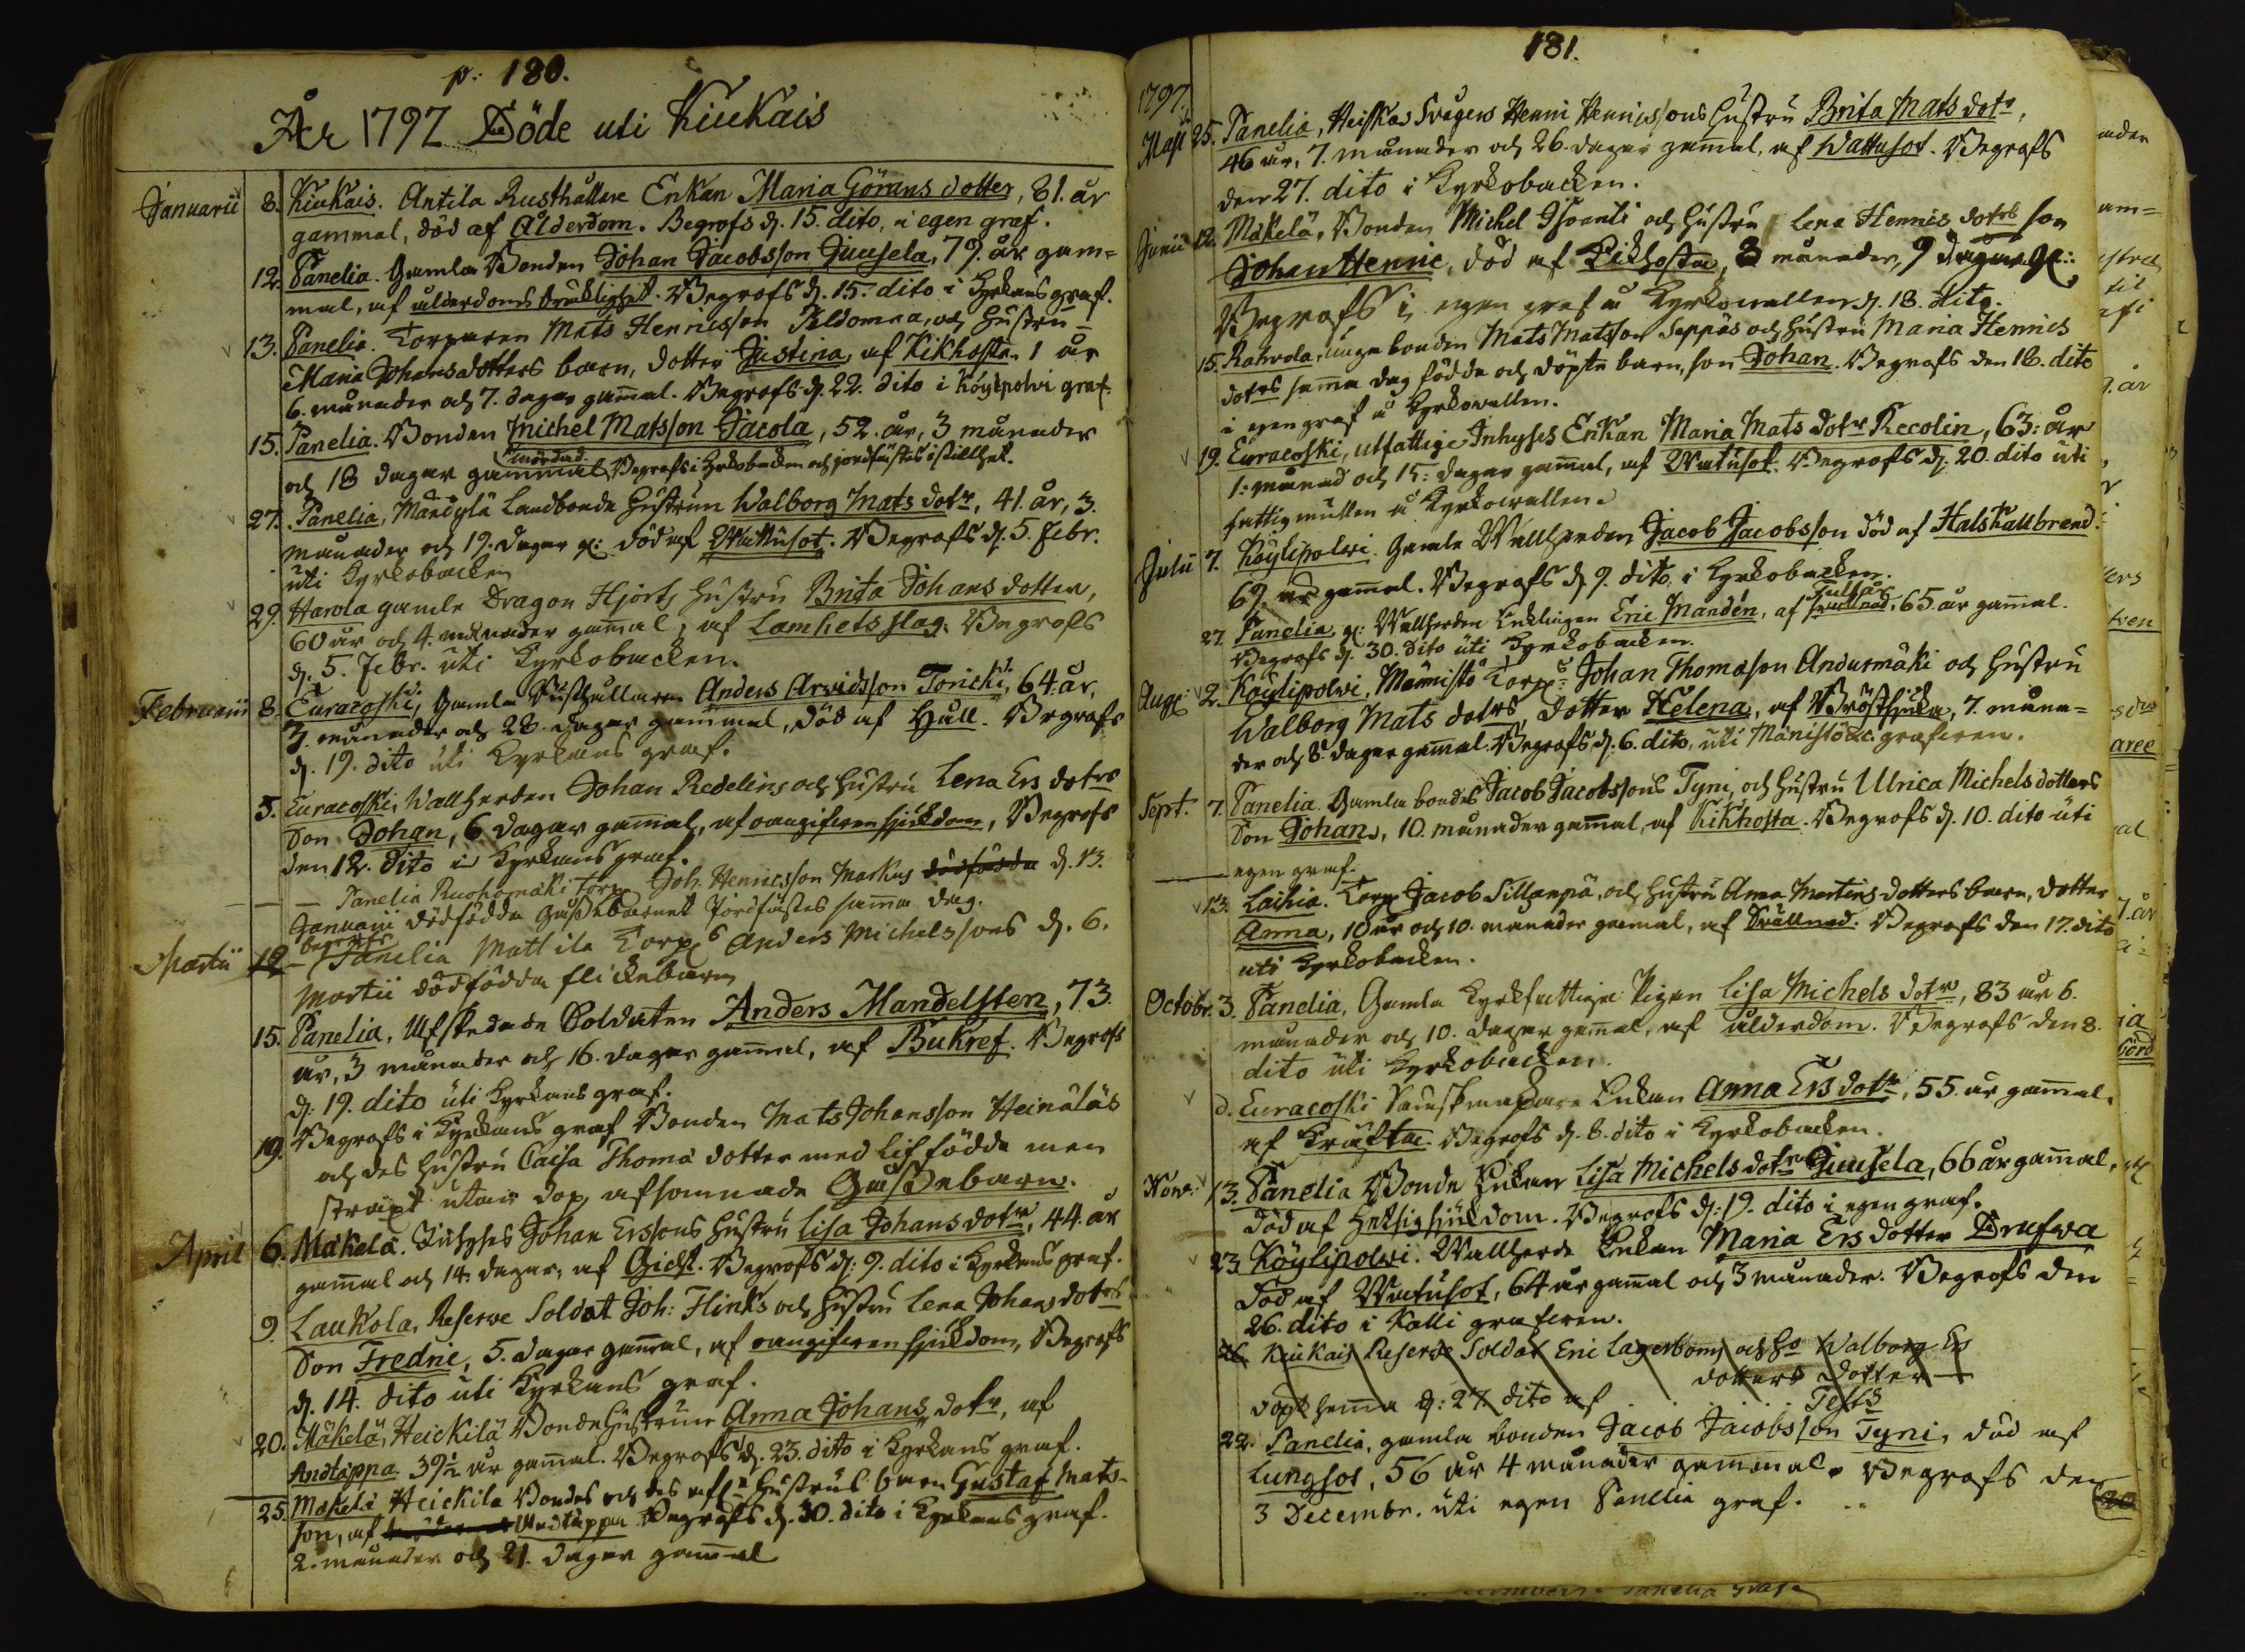 p. 180.
År 1797 Döde uti Kiukais
Januarii 8. Kiukais. Antila Rusthållare Enkan Maria Görans dotter, 81. år
gammal, död af Ålderdom. Begrofs d. 15. dito, i egen graf.
12. Panelia. Gamla Bonden Johan Jacobsson Juusela, 79. år gam=
mal, af ålderdoms bräcklighet. Begrofs d. 15. dito i Kyrkans graf.
13. Panelia. Torparen Mats Henricsson Peldomaa, och Hustru
Maria Johansdotters barn, dotter Justina, af Kikhosta. 1 år
6. månader och 7. dagar gamal. Begrofs d. 22. dito i Köylipolvi graf.
15. Panelia. Bonden Michel Matsson Jacola, 52. år, 3 månader
mördad.
och 18 dagar gammal, Begrofs i Kyrkobacken och jordfästes i stillhet.
27. Panelia, Mändylä Landbonde Hustrun Walborg Mats dotr, 41. år, 3.
månader och 19. dagar g: död af Wattusot. Begrofs d. 5. Febr.
uti Kyrkobacken
29. Harola gamle Dragon Hjorts Hustru Brita Johans dotter,
60 år och 4. månader gamal, af Lamhets slag. Begrofs
d. 5. Febr. uti Kyrkobacken.
Februarii 8. Euracoski, Gamla Rusthållaren Anders Arvidsson Toricki, 64. år,
3. månader och 28. dagar gammal, död af Håll. Begrofs
d. 19. dito uti Kyrkans graf.
5. Euracoski, Wallherden Johan Redelins och Hustru Lena Ers dotrs
Son Johan, 6 dagar gamal, af oangifven sjukdom, Begrofs
den 12. dito i Kyrkans graf.
— Panelia Ruohomäki Torp. Joh. Henricsson Markus dödfödda d. 13.
Januarii dödfödda Gossebarnet Jordfästes samma dag.
begrofs
Martii 12 — Panelia Mattila Torp.s Anders Michelssons d. 6.
Martii dödfödda flickebarn
15. Panelia, Afskedade Soldaten Anders Mandelsten, 73.
år, 3 månader och 16. dagar gamal, af Bukref. Begrofs
d. 19. dito uti Kyrkans graf.
19. Begrofs i Kyrkans graf Bonden Mats Johansson Heinäläs
och des Hustru Caisa Thomæ dotter med lif födda men
straxt utan dop afsomnade Gossebarn.
April 6. Mäkelä. Inhyses Johan Erssons Hustru Lisa Johans dotr, 44. år
gamal och 14. dagar, af Gicht. Begrofs d. 9. dito i Kyrkans graf.
9. Laukola, Reserve Soldat Joh: Flinks och Hustru Lena Johans dotrs
Son Fredric, 5. dagar gamal, af oangifven sjukdom, Begrofs
d. 14. dito uti Kyrkans graf.
20. Mäkelä, Heickilä Bonde Hustrun Anna Johans dotr, af
Andtäppa. 39½ år gamal. Begrofs d. 23. dito i Kyrkans graf.
25. Mäkelä Heickilä Bondes och des afl: Hustrus barn Gustaf Mats=
son, af Andtäppa Begrofs d. 30. dito i Kyrkans graf.
2. månader och 21. dagar gammal
181.
1797.
Maji 25. Panelia, Heiskas Svågers Henric Henricssons Hustru Brita Mats dotr,
46 år, 7. månader och 26. dagar gamal, af Wattusot. Begrofs
den 27. dito i Kyrkobacken.
Junii 12. Mäkelä, Bonden Michel Isoanti och Hustru Lena Henrics dotrs son
Johan Henric, död af Kikhosta, 3 månader, 9 dagar g:
Begrofs i egen graf å Kyrkovallen d. 18. dito.
15. Rahvola, unga bonden Mats Matsson Seppäs och Hustru Maria Henrics
dotrs samma dag födda och döpte barn, son Johan. Begrofs den 18. dito
i egen graf å Kyrkovallen.
19. Euracoski, utfattige Inhyses Enkan Maria Mats dotr Recolin, 63: år
1: månad och 15: dagar gamal, af Wattusot. Begrofs d. 20. dito uti
fattigmullen å Kyrkovallen.
Julii 7. Köylipolvi. Gamle Wallherden Jacob Jacobsson död af Halskallbrand.
69. år gamal. Begrofs d. 9. dito, i Kyrkobacken.
27. Panelia, g: Wallherden Enklingen Eric Mandén, af Svullnad, 65. år gamal.
Begrofs d. 30. dito uti Kyrkobacken.
Aug: 2. Köylipolvi, Männistö Torp:s Johan Thomasson Andusmäki och Hustru
Walborg Mats dotrs, dotter Helena, af Bröstsjuka, 7. måna=
der och 8. dagar gamal. Begrofs d. 6. dito, uti Mänistö &c. grafven.
Sept. 7. Panelia. Gamla bondes Jacob Jacobssons Tyni, och Hustru Ulrica Michels dotters
Son Johan, 10. månader gamal, af Kikhosta. Begrofs d. 10. dito uti
egen graf.
13. Laihia. Torp. Jacob Sillanpä, och Hustru Anna Martins dotters barn, dotter
Anna, 10 år och 10. månader gamal, af Svullnad. Begrofs den 17. dito
uti Kyrkobacken.
Octobr. 3. Panelia, Gamla Kyrkfattiga Pigan Lisa Michels dotr, 83 år 6.
månader och 10. dagar gamal, af ålderdom. Begrofs den 8.
dito uti Kyrkobacken.
d. Euracoski Enkan Anna Ers dotr, 55. år gamal.
af Kräfta. Begrofs d. 8. dito i Kyrkobacken.
Nov: 13. Panelia Bonde Enkan Lisa Michels dotr Juusela, 66 år gamal,
död af hetsig sjukdom. Begrofs d: 19. dito i egen graf.
23. Köylipolvi. Wallherde Enkan Maria Ers dotter Drufva
död af Wattusot, 64 år gamal och 3 månader. Begrofs den
26. dito i Kalli grafven.
26. Kiukais Reserve Soldat Eric Lagerboms och Ho Walborg Ers
dotters dotter —
döpt hemma d: 27. dito af
22. Panelia, gamla bonden Jacob Jacobsson Tyni, död af
Lungsot, 56 år 4 månader gammal. Begrofs den
3 Decembr. uti egen Panelia graf.